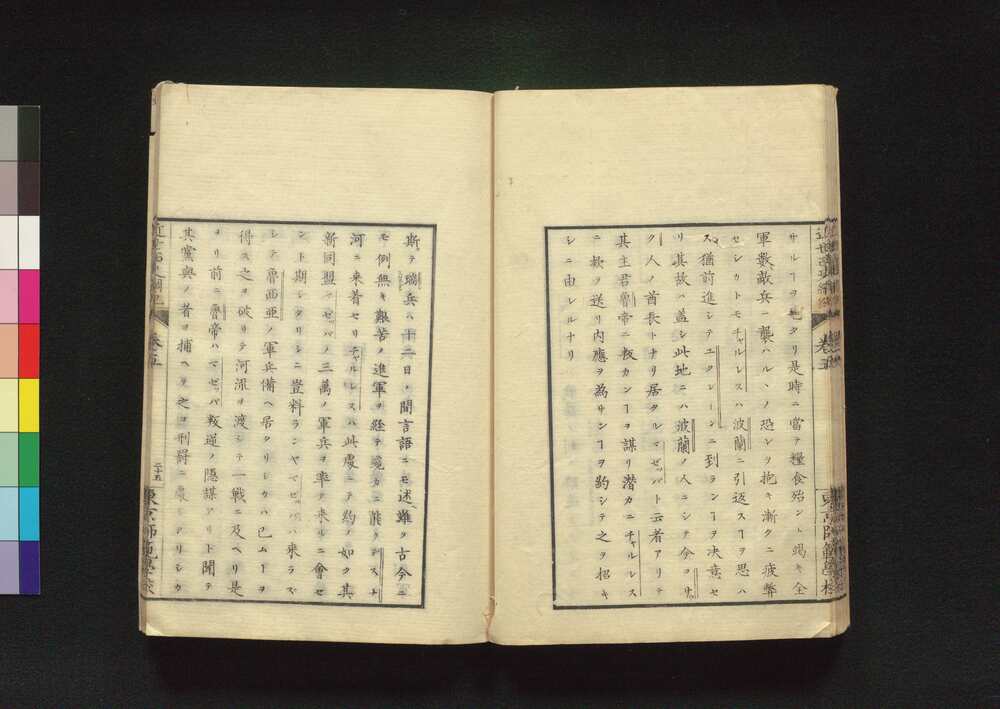 サルヿヲ他タリ是時ニ當テ糧食殆ント竭キ全
軍數敵兵ニ襲ハルヽノ恐レヲ抱キ漸クニ疲弊
セシカトモチャルレスハ波蘭ニ引返スヿヲ思ハ
ス猶前進シテユクレーンニ到ランヿヲ决意セ
リ其故ハ蓋シ此地ニハ波蘭ノ人ニシテ今コサッ
ク人ノ酋長トナリ居タルマゼッパト云者アリテ
其主君魯帝ニ叛カンヿヲ謀リ潜カニチャルレス
ニ款ヲ送リ内應ヲ為サンヿヲ約シテ之ヲ招キ
シニ由レルナリ
斯テ瑞兵ハ十二日ノ間言語ニモ述難ク古今ニ
モ例無キ艱苦ノ進軍ヲ經テ竟カニ
河ニ来着セリチャルレスハ此處ニテ約ノ如ク其
新同盟マゼッパノ三萬ノ軍兵ヲ率テ来ルニ會セ
ント期シタリシニ豈料ランヤマゼッパハ来ラズ
シテ魯西亜ノ軍兵備ヘ居タリシカハ已ムヿヲ
得ス之ヲ破リテ河流ヲ渡シテ一戰ニ及ヘリ是
ヨリ前ニ魯帝ハマゼッパ叛逆ノ隠謀アリト聞テ
其黨與ノ者ヲ捕ヘテ之ヲ刑罸ニ處シアリシカ
卷五
二十五
東京師範學校